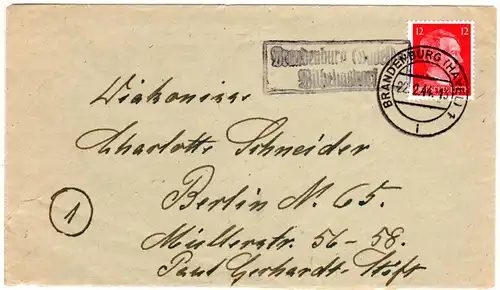 12 12
Brandenburg (Havel)
BRANDENBURG (HAVEL) 1
22.2.44.
i
Diakonisse
Charlotte Schneider
Berlin N. 65.
1
Müllerstr. 56-58.
Paul Gerhardt-Stift